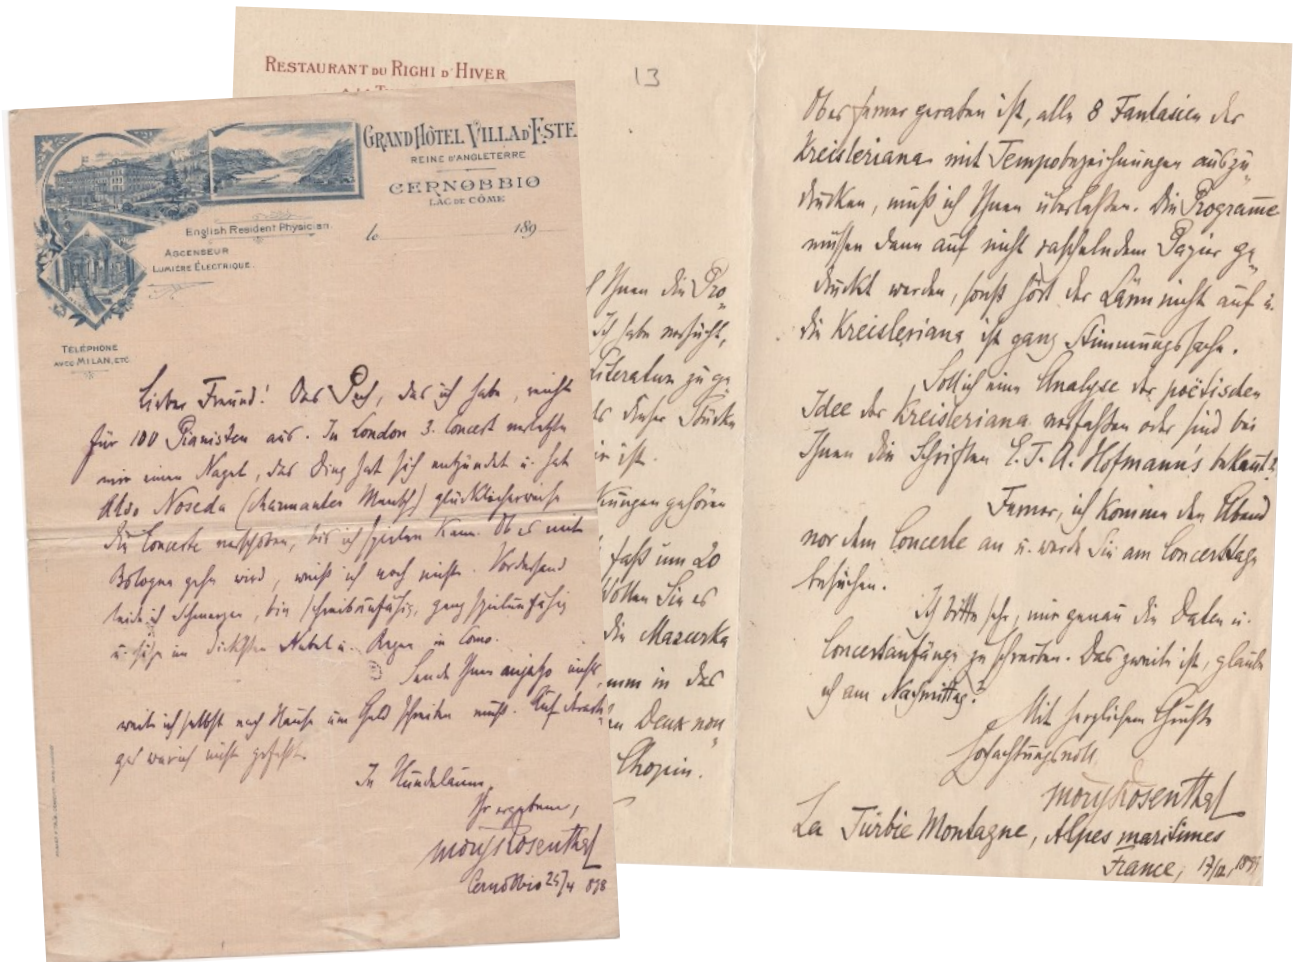 RESTAURANT DU RIGHI D'HIVER
13
GRAND HÔTEL VILLA D'ESTE
REINE D'ANGLETERRE
CERNOBBIO
LAC DE CÔME
English Resident Physician
le 189
ASCENSEUR
LUMIÈRE ÉLECTRIQUE.
TÉLÉPHONE
AVEC MILAN, ETC.
Lieber Freund! Das Pech, das ich habe, reicht
für 100 Pianisten aus. In London 3. Concert
mir einen Nagel, das Ding hat sich entzündet u. hat
Noseda (charmanter Mensch) glücklicherweise
die Concerte verschoben, bis ich spielen kann. Ob es mit
Bologna gehn wird, weiß ich noch nicht. Vorderhand
leide ich Schmerzen, bin schreibunfähig, ganz spielunfähig
u. sitze im dicksten Nebel u. Regen in Como.
Sende Ihnen nichts,
weil ich selbst nach Hause um Geld schreiben muß. Auf
war ich nicht gefaßt.
In Hundelaune,
Ihr ergebener,
Moriz Rosenthal
Cernobbio 25/4 898
Ihnen die Pro
Ich habe versucht,
Literatur zu
dieser Stücke
ist.
gehören
faß um 20
Wollen Sie es
die Mazurka
in das
Denk
Chopin.
Ob es ferner geraten ist, alle 8 Fantasien der
Kreisleriana mit Tempobezeichnungen auszu
drucken, muß ich Ihnen überlassen. Die Programme
müssen dann auf nicht raschelndem Papier ge
druckt werden, sonst hört der Lärm nicht auf u.
die Kreisleriana ist ganz Stimmungssache.
Soll ich eine Analyse der poëtischen
Idee der Kreisleriana verfassen oder sind bei
Ihnen die Schriften E. T. A. Hofmann's bekannt?
Ferner, ich komme den Abend
vor dem Concerte an u. werde Sie am Concerttage
besuchen.
Ich bitte sehr, mir genau die Daten u.
Concertanfänge zu schreiben. Das zweite ist, glaube
ich am Nachmittag?
Mit herzlichem Gruße
Hochachtungsvoll
Moriz Rosenthal
La Turbie Montagne, Alpes maritimes
France, 17/12, 1899